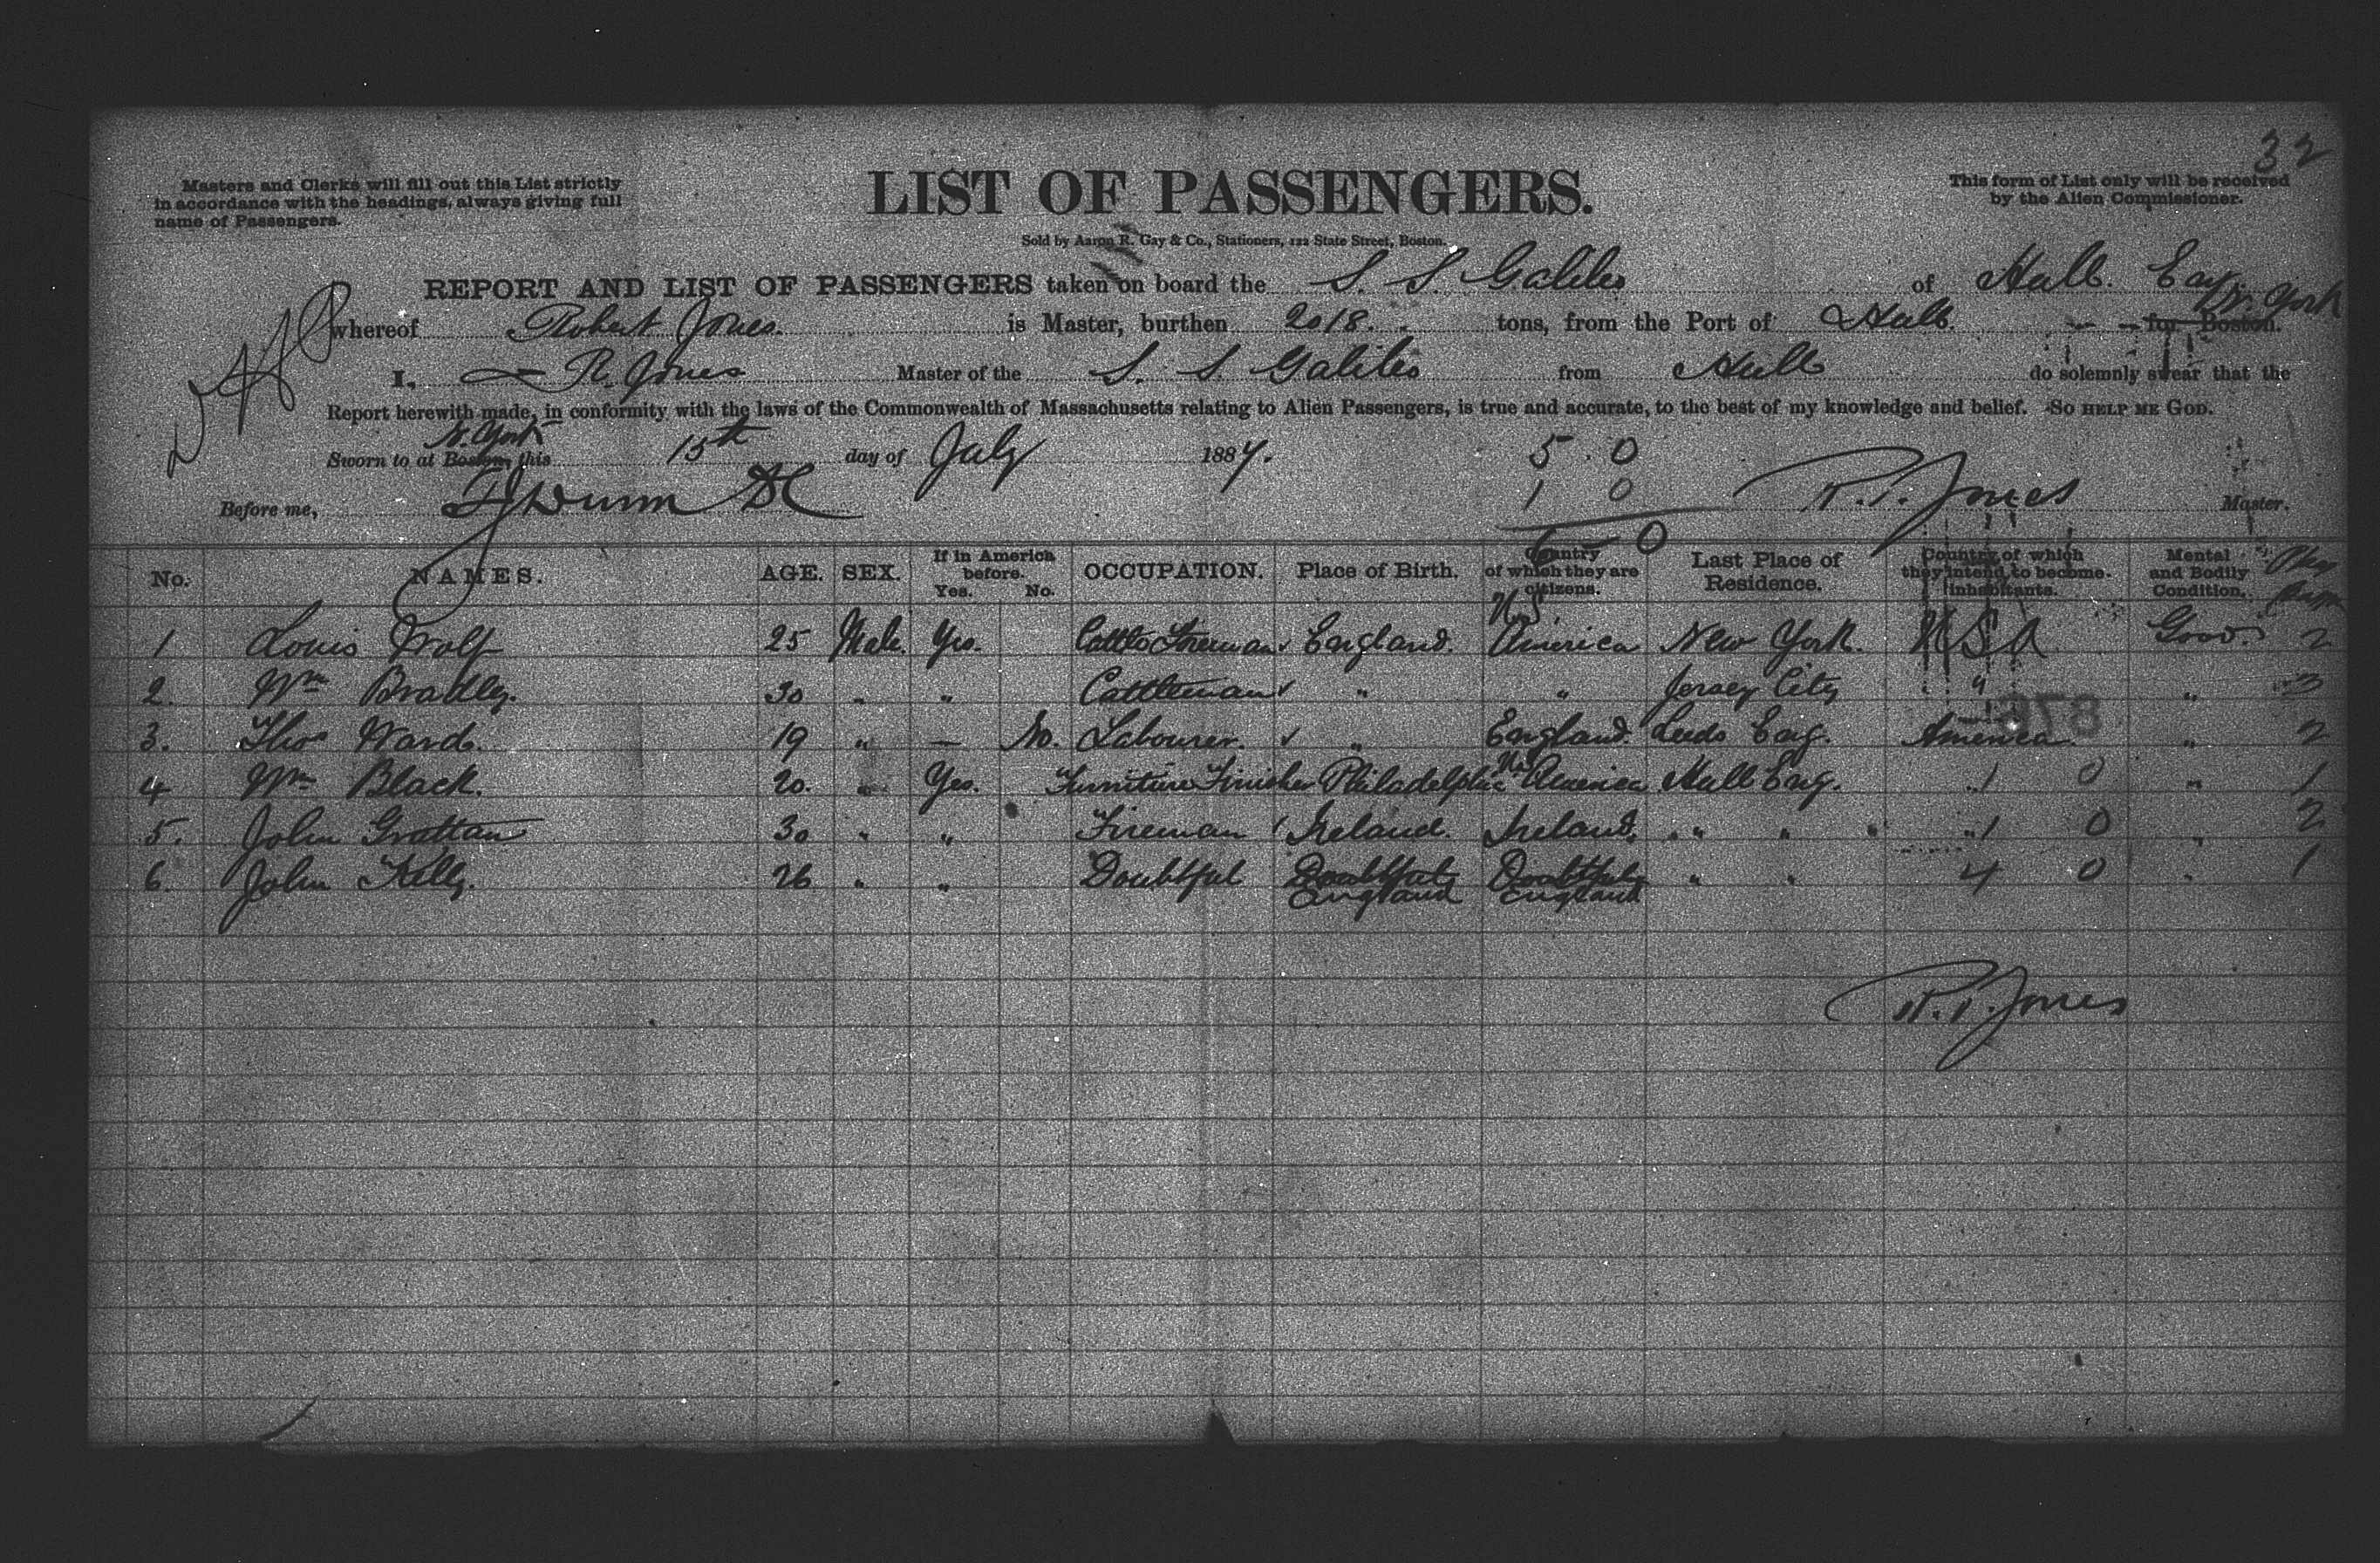 32
Masters and Clerks will fill out this List strictly
in accordance with the headings, always giving full
name of Passengers.
LIST OF PASSENGERS.
This form of List only will be received
by the Alien Commissioner.
Sold by Aaron R. Gay & Co., Stationers, 122 State Street, Boston.
REPORT AND LIST OF PASSENGERS taken on board the S. S. Galileo of Hull. Eng.
N. York
whereof Robert Jones. is Master, burthen 2018. tons, from the Port of Hull. for Boston.
I, R. Jones Master of the S. S. Galileo from Hull do solemnly swear that the
Report herewith made, in conformity with the laws of the Commonwealth of Massachusetts relating to Alien Passengers, is true and accurate, to the best of my knowledge and belief. So HELP ME GOD.
N. York
Sworn to at Boston, this 15th day of July 1884. 5 . 0
1 0
Before me, Dunn R. P. Jones Master.
6 0
No. NAMES. AGE. SEX. If in America before. Yes. No. OCCUPATION. Place of Birth. Country of which they are citizens. Last Place of Residence. Country of which they intend to become inhabitants. Mental and Bodily Condition.
1 Louis Wolf 25 Male. Yes. Cattle Foreman England. N. S America New York. U S A Good. 2
2. Wm Bradley. 30 " " Cattleman " " Jersey City " " 3
3. Thos Ward. 19 " — No. Labourer. " England. Leeds Eng. America " 2
4 Wm Black. 20. " Yes. Furniture Finisher Philadelphia America Hull Eng. " 1 0 " 1
5. John Grattan 30 " " Fireman Ireland. Ireland. " " " " 1 0 " 2
6. John Kelly. 26 " " Doubtful Doubtful England Doubtful England " " 4 0 " 1
876
R. P. Jones